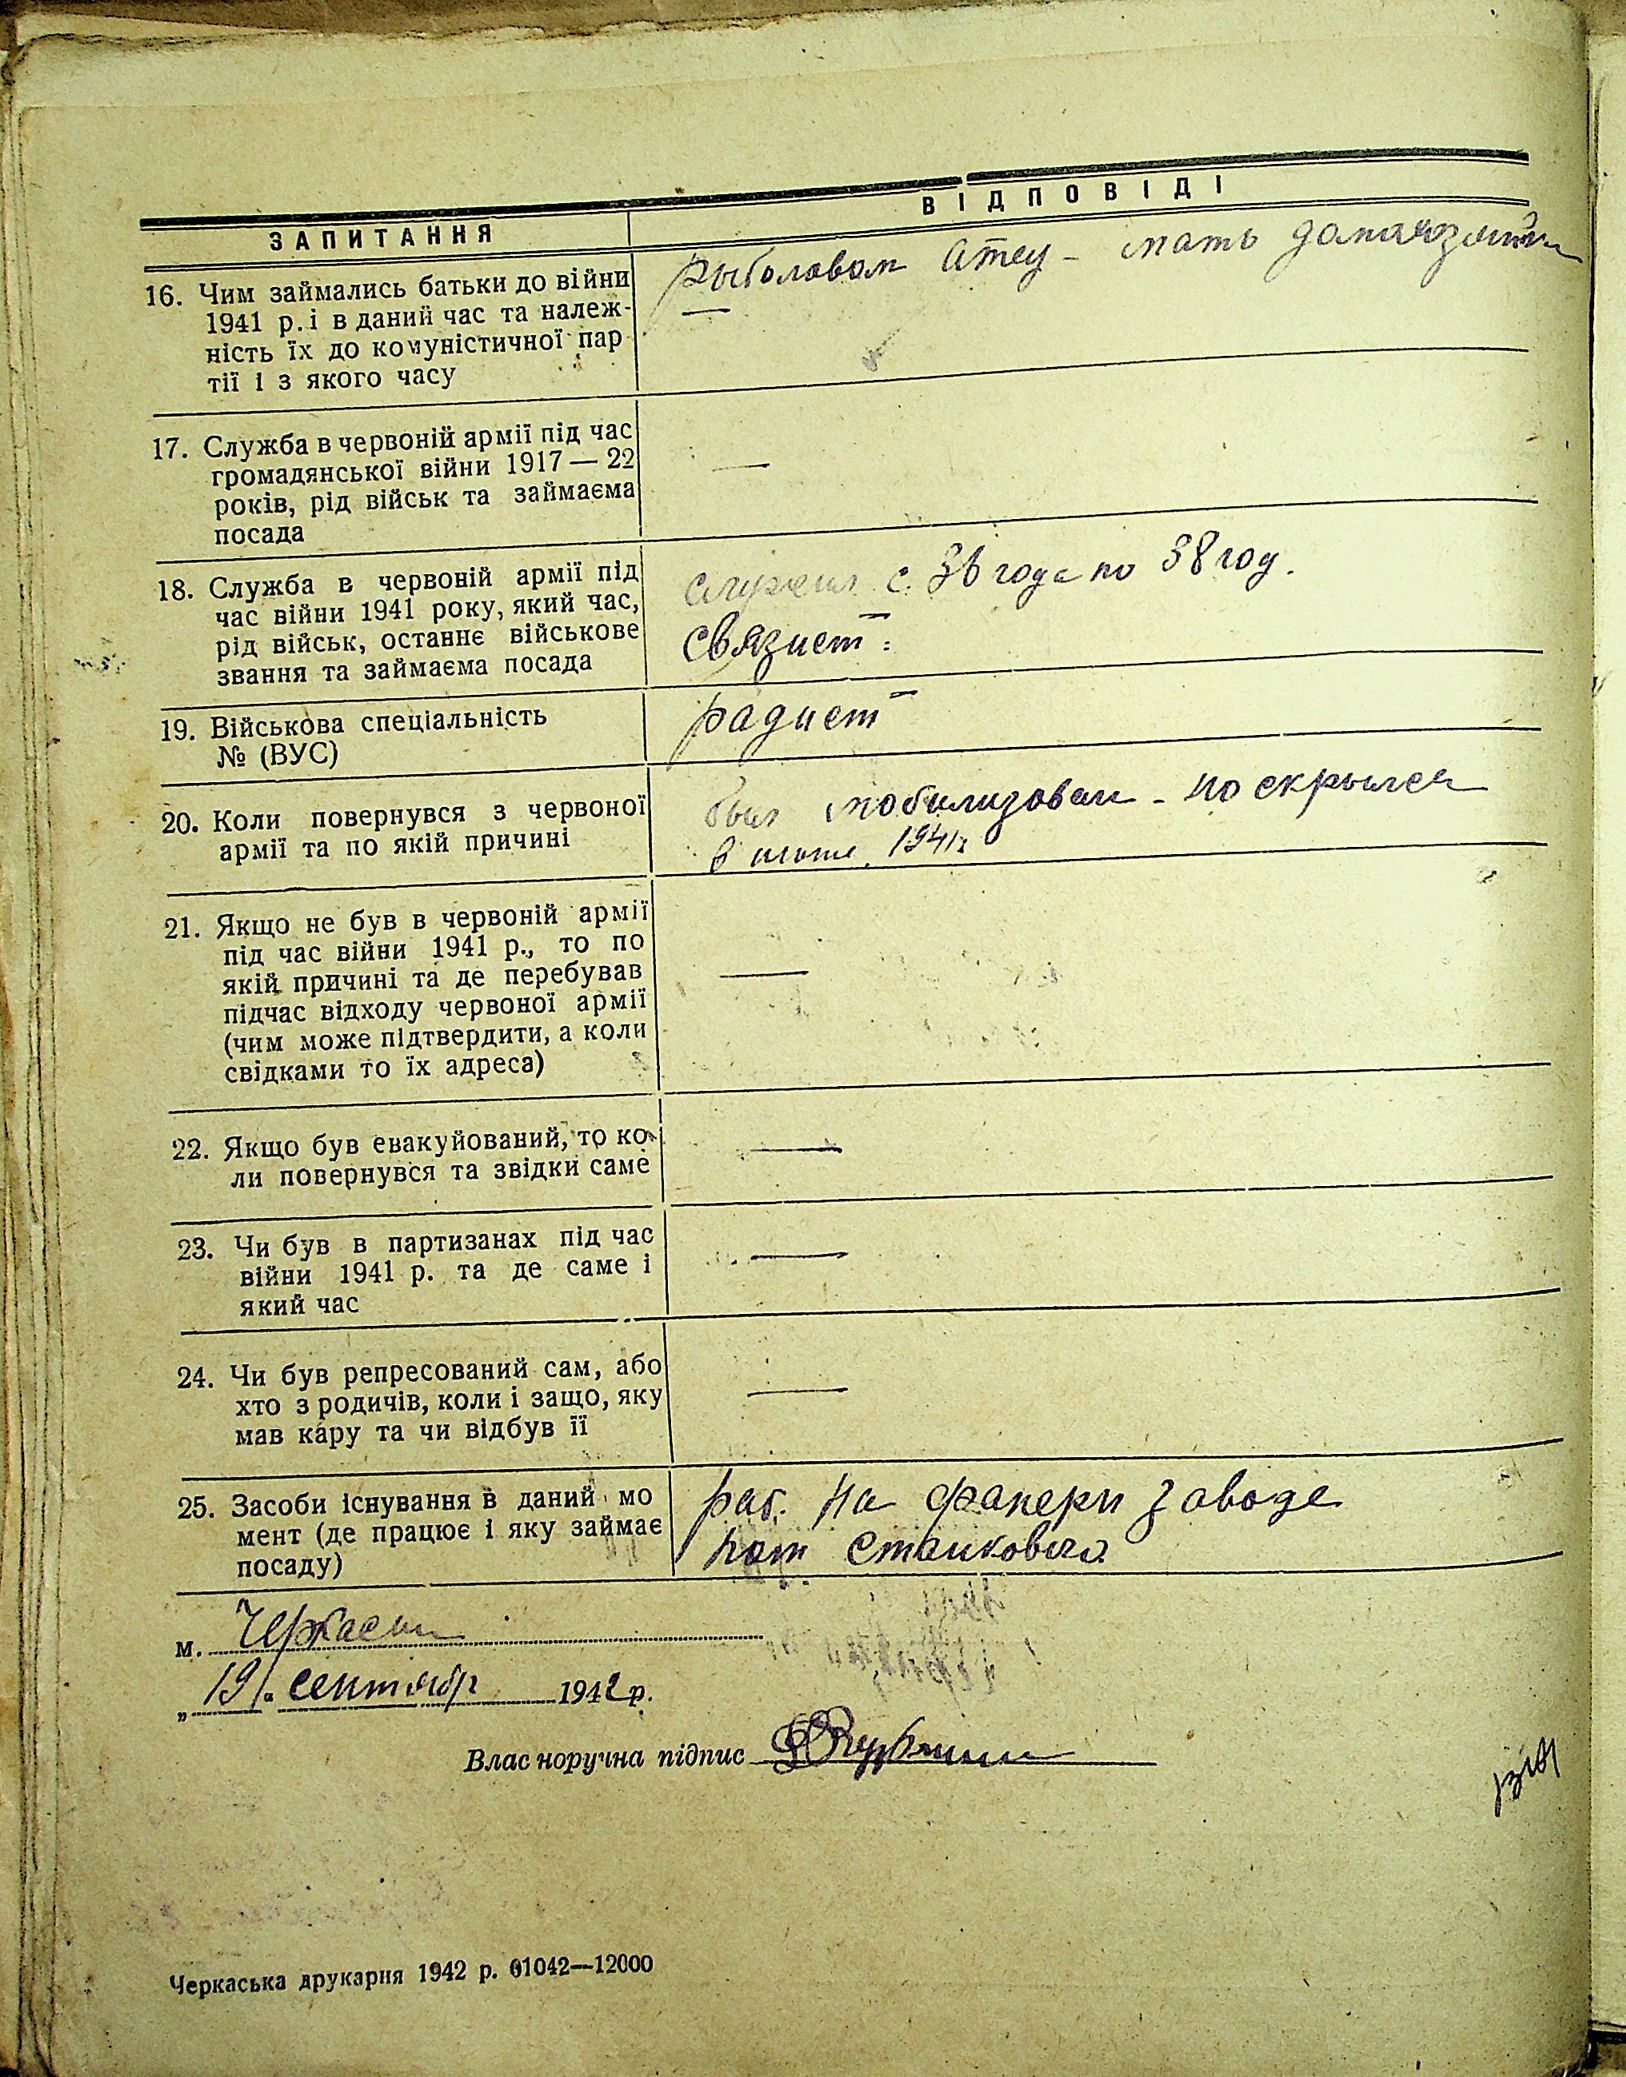 ЗАПИТАННЯ
ВІДПОВІДІ
16. Чим займались батьки до війни
1941 р. і в даний час та належ-
ність їх до комуністичної пар
тії і з якого часу
Рыболовом Отец - мать домохозяйки
—
17. Служба в червоній армії під час
громадянської війни 1917 — 22
років, рід військ та займаєма
посада
—
18. Служба в червоній армії під
час війни 1941 року, який час,
рід військ, останнє військове
звання та займаєма посада
служил с 36 года по 38 год.
Связист.
19. Військова спеціальність
№ (ВУС)
радист
20. Коли повернувся з червоної
армії та по якій причині
был мобилизован - но скрылся
в 1941г
21. Якщо не був в червоній армії
під час війни 1941 р., то по
якій причині та де перебував
підчас відходу червоної армії
(чим може підтвердити, а коли
свідками то їх адреса)
—
22. Якщо був евакуйований, то ко-
ли повернувся та звідки саме
—
23. Чи був в партизанах під час
війни 1941 р. та де саме і
який час
—
24. Чи був репресований сам, або
хто з родичів, коли і защо, яку
мав кару та чи відбув її
—
25. Засоби існування в даний мо
мент (де працює і яку займає
посаду)
раб. на фанерн заводе
м. Черкассы
„ 19 " сентябр 1942 р.
Влас норучна підпис
Черкаська друкарня 1942 р. 01042—12000